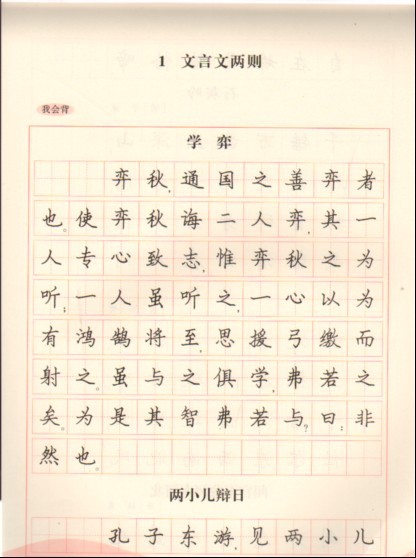 1 文言文两则
我会背
学弈
弈秋,通国之善弈者
也。使弈秋诲二人弈,其一
人专心致志,惟弈秋之为
听;一人虽听之,一心以为
有鸿鹄将至,思援弓缴而
射之。虽与之俱学,弗若之
矣。为是其智弗若与?曰:非
然也。
两小儿辩日
孔子东游,见两小儿